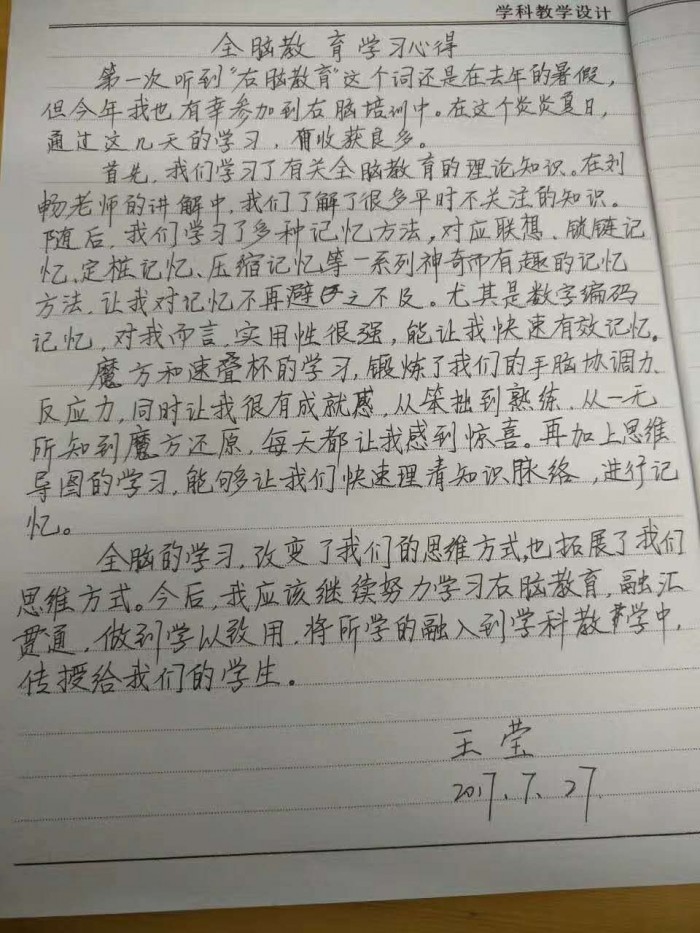 学科教学设计
全脑教育学习心得
第一次听到“右脑教育”这个词还是在去年的暑假,
但今年我也有幸参加到右脑培训中。在这个炎炎夏日,
通过这几天的学习,收获良多。
首先,我们学习了有关全脑教育的理论知识。在刘
畅老师的讲解中,我们了解了很多平时不关注的知识。
随后,我们学习了多种记忆方法,对应联想、锁链记
忆、定桩记忆、压缩记忆等一系列神奇而有趣的记忆
方法,让我对记忆不再避之不及。尤其是数字编码
记忆,对我而言,实用性很强,能让我快速有效记忆。
魔方和速叠杯的学习,锻炼了我们的手脑协调力、
反应力,同时让我很有成就感,从笨拙到熟练,从一无
所知到魔方还原,每天都让我感到惊喜。再加上思维
导图的学习,能够让我们快速理清知识脉络,进行记
忆。
全脑的学习,改变了我们的思维方式,也拓展了我们
思维方式。今后,我应该继续努力学习右脑教育,融汇
贯通,做到学以致用,将所学的融入到学科教学中,
传授给我们的学生。
王莹
2017.7.27.